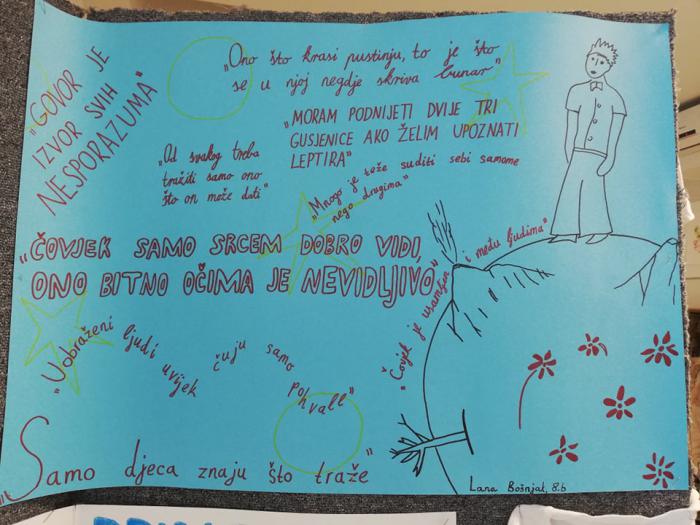 „GOVOR JE
IZVOR SVIH
NESPORAZUMA“
„Ono što krasi pustinju, to je što
se u njoj negdje skriva bunar“
„MORAM PODNIJETI DVIJE TRI
GUSJENICE AKO ŽELIM UPOZNATI
LEPTIRA“
„Od svakog treba
tražiti samo ono
što on može dati“
„Mnogo je teže suditi sebi samome
nego drugima“
„ČOVJEK SAMO SRCEM DOBRO VIDI,
ONO BITNO OČIMA JE NEVIDLJIVO“
„Čovjek je usamljen i među ljudima“
„Uobraženi ljudi uvijek čuju samo pohvale“
„Samo djeca znaju što traže“
Lana Bošnjak, 8.b